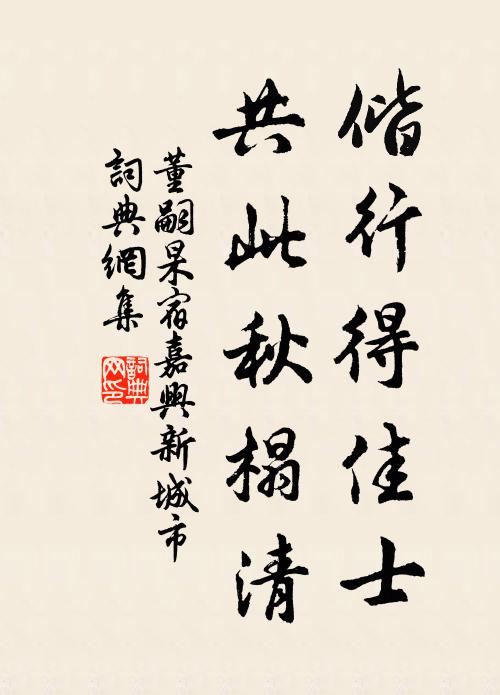 偕行得佳士
共此秋榻清
董嗣杲宿嘉興新城市
詞典網集
詞典
网印